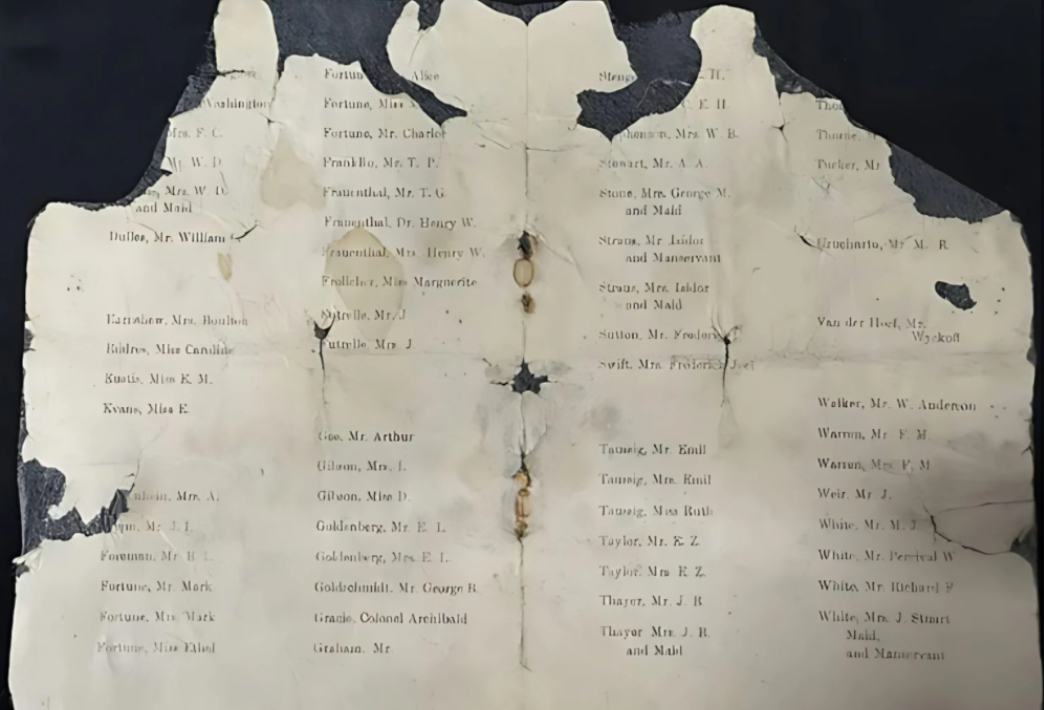 Washington
Mrs. F. C.
Mr. W. D.
Mrs. W. D.
and Maid
Dulles, Mr. William
Mrs. Boulton
Miss Caroline
Miss K. M.
Miss E.
Mrs. A.
Mr. J. L.
Foreman, Mr. B. L.
Fortune, Mr. Mark
Fortune, Mrs. Mark
Fortune, Miss Ethel
Alice
Fortune, Miss
Fortune, Mr. Charles
Franklin, Mr. T. P.
Frauenthal, Mr. T. G.
Frauenthal, Dr. Henry W.
Frauenthal, Mrs. Henry W.
Frolicher, Miss Marguerite
Futrelle, Mr. J.
Futrelle, Mrs. J.
Gee, Mr. Arthur
Gibson, Mrs. L.
Gibson, Miss D.
Goldenberg, Mr. E. L.
Goldenberg, Mrs. E. L.
Goldschmidt, Mr. George B.
Gracie, Colonel Archibald
Graham, Mr.
H.
C. E. H.
Mrs. W. B.
Stewart, Mr. A. A.
Stone, Mrs. George M.
and Maid
Straus, Mr. Isidor
and Manservant
Straus, Mrs. Isidor
and Maid
Sutton, Mr. Frederick
Swift, Mrs. Frederick Joel
Taussig, Mr. Emil
Taussig, Mrs. Emil
Taussig, Miss Ruth
Taylor, Mr. E. Z.
Taylor, Mrs. E. Z.
Thayer, Mr. J. B.
Thayer Mrs. J. B.
and Maid
Thorne,
Tucker, Mr.
Uruchurtu, Mr. M. R.
Van der Hoef, Mr.
Wyckoff
Walker, Mr. W. Anderson
Warren, Mr. F. M.
Warren, Mrs. F. M.
Weir, Mr. J.
White, Mr. M. J.
White, Mr. Percival W.
White, Mr. Richard F.
White, Mrs. J. Stuart
Maid,
and Manservant